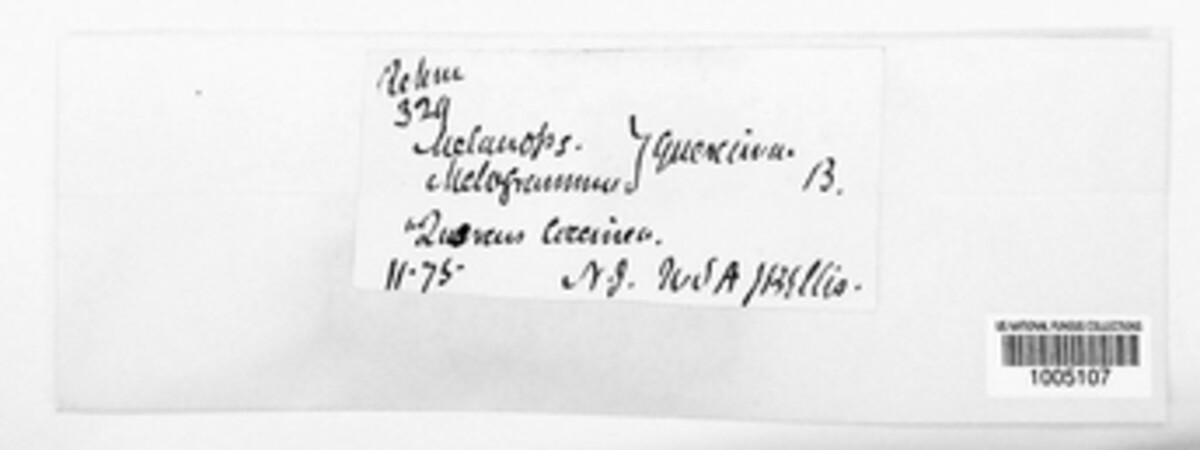 Rehm
329
Melanops. } quercina.
Melogramma B.
"Quercus coccinea.
11-75 N. J. USA JBEllis.
US NATIONAL FUNGUS COLLECTIONS
1005107